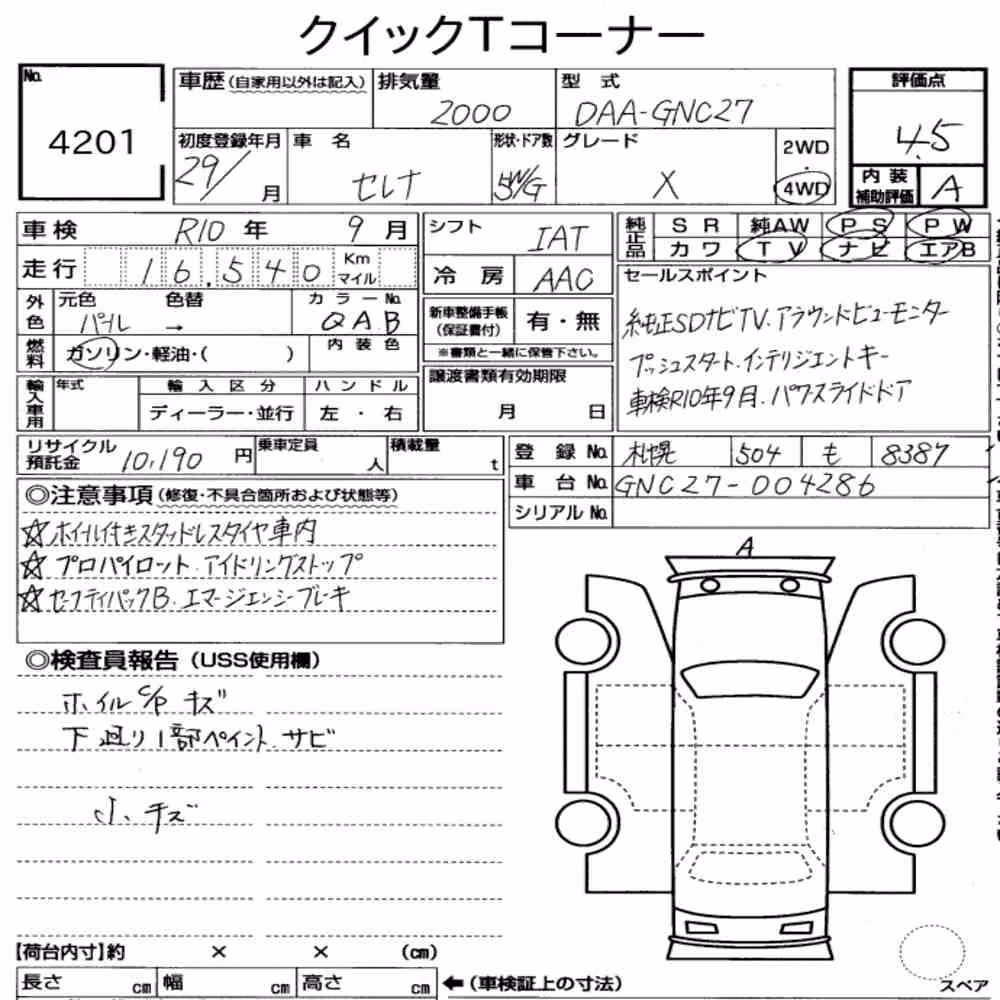 クイックTコーナー
No. 4201
車歴(自家用以外は記入) 排気量 2000 型式 DAA-GNC27 評価点 4.5
初度登録年月 29/ 月 車名 セレナ 形状・ドア数 5W/G グレード X 2WD・4WD
内装補助評価 A
車検 R10年 9月 シフト IAT 純正品 SR 純AW PS PW
カワ TV ナビ エアB
走行 16,540 Km マイル 冷房 AAC
セールスポイント
純正SDナビTV.アラウンドビューモニター
プッシュスタート.インテリジェントキー
車検R10年9月.パワスライドドア
外色 元色 パール → 色替 カラーNo. QAB
新車整備手帳(保証書付) 有・無
※書類と一緒に保管下さい。
燃料 ガソリン・軽油・( ) 内装色
譲渡書類有効期限 月 日
輸入車用 年式 輸入区分 ハンドル
ディーラー・並行 左・右
リサイクル預託金 10,190円 乗車定員 人 積載量 t
登録No. 札幌 504 も 8387
車台No. GNC27-004286
シリアルNo.
◎注意事項(修復・不具合箇所および状態等)
☆ホイル付きスタッドレスタイヤ車内
☆プロパイロット.アイドリングストップ
☆セーフティパックB.エマージェンシーブレーキ
A
◎検査員報告(USS使用欄)
ホイルC/P キズ
下廻り1部ペイント.サビ
小.キズ
【荷台内寸】約 × × (cm)
長さ cm 幅 cm 高さ cm ←(車検証上の寸法)
スペア